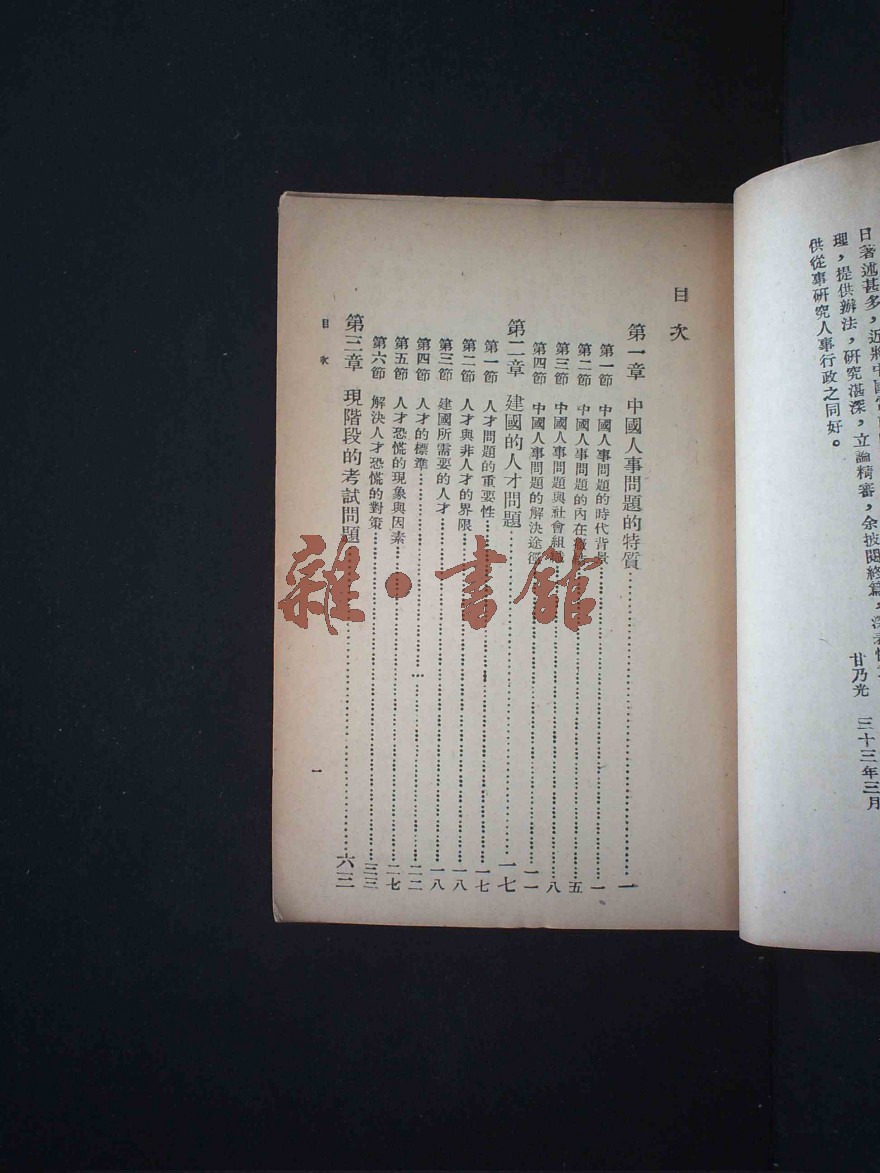 日著述甚多，近將中國
理，提供辦法，研究湛深，立論精審，余披閱終篇，深
供從事研究人事行政之同好。
甘乃光　三十三年三月
目次
第一章　中國人事問題的特質……一
第一節　中國人事問題的時代背景……一
第二節　中國人事問題的內在……五
第三節　中國人事問題與社會組……八
第四節　中國人事問題的解決途徑……一一
第二章　建國的人才問題……一七
第一節　人才問題的重要性……一七
第二節　人才與非人才的界限……一八
第三節　建國所需要的人才……一八
第四節　人才的標準……二二
第五節　人才恐慌的現象與因素……二七
第六節　解決人才恐慌的對策……三三
第三章　現階段的考試問題……六三
目次
一
雜·書館